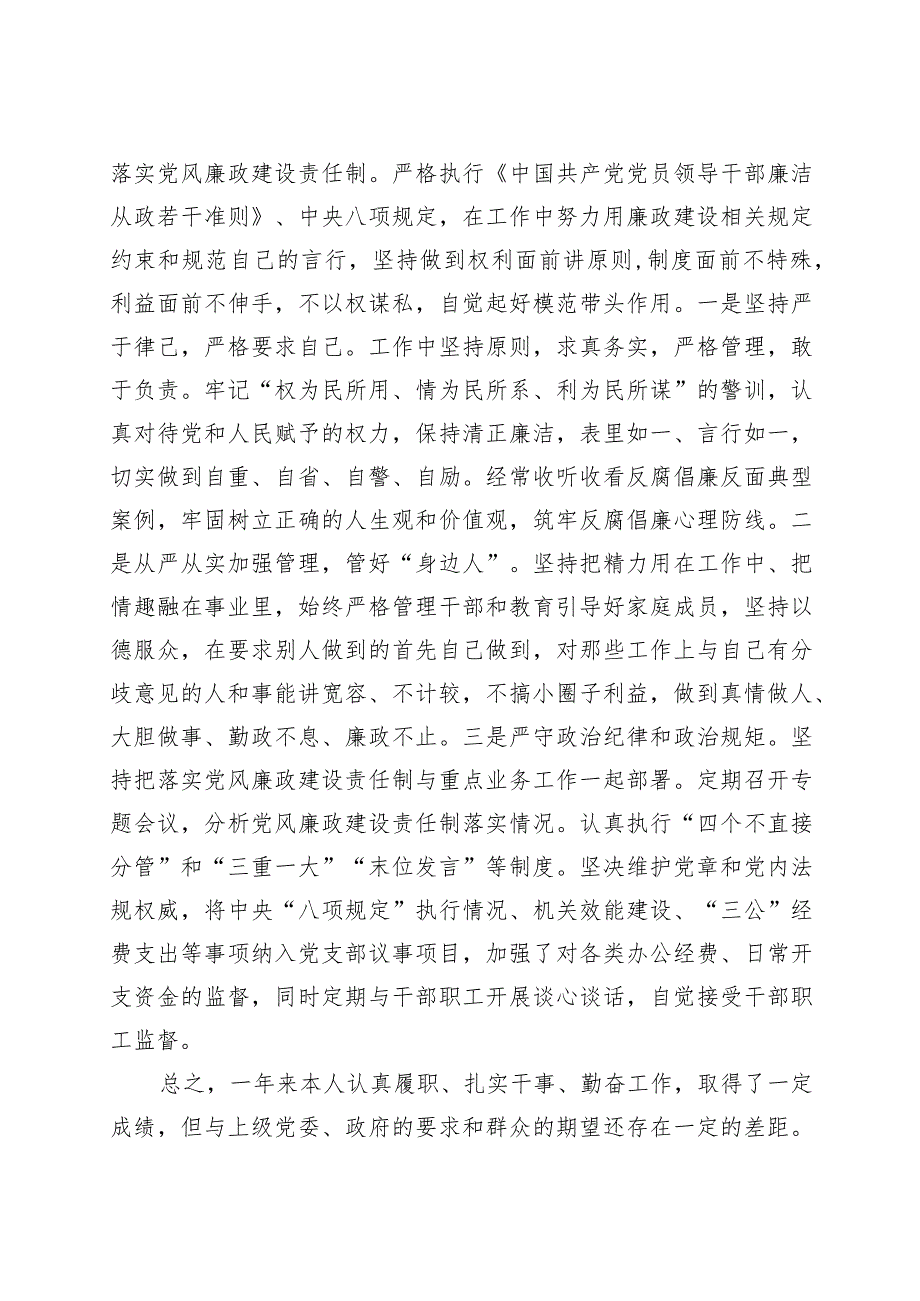 落实党风廉政建设责任制。严格执行《中国共产党党员领导干部廉洁
从政若干准则》、中央八项规定，在工作中努力用廉政建设相关规定
约束和规范自己的言行，坚持做到权利面前讲原则,制度面前不特殊，
利益面前不伸手，不以权谋私，自觉起好模范带头作用。一是坚持严
于律己，严格要求自己。工作中坚持原则，求真务实，严格管理，敢
于负责。牢记“权为民所用、情为民所系、利为民所谋”的警训，认
真对待党和人民赋予的权力，保持清正廉洁，表里如一、言行如一，
切实做到自重、自省、自警、自励。经常收听收看反腐倡廉反面典型
案例，牢固树立正确的人生观和价值观，筑牢反腐倡廉心理防线。二
是从严从实加强管理，管好“身边人”。坚持把精力用在工作中、把
情趣融在事业里，始终严格管理干部和教育引导好家庭成员，坚持以
德服众，在要求别人做到的首先自己做到，对那些工作上与自己有分
歧意见的人和事能讲宽容、不计较，不搞小圈子利益，做到真情做人、
大胆做事、勤政不息、廉政不止。三是严守政治纪律和政治规矩。坚
持把落实党风廉政建设责任制与重点业务工作一起部署。定期召开专
题会议，分析党风廉政建设责任制落实情况。认真执行“四个不直接
分管”和“三重一大”“末位发言”等制度。坚决维护党章和党内法
规权威，将中央“八项规定”执行情况、机关效能建设、“三公”经
费支出等事项纳入党支部议事项目，加强了对各类办公经费、日常开
支资金的监督，同时定期与干部职工开展谈心谈话，自觉接受干部职
工监督。
总之，一年来本人认真履职、扎实干事、勤奋工作，取得了一定
成绩，但与上级党委、政府的要求和群众的期望还存在一定的差距。